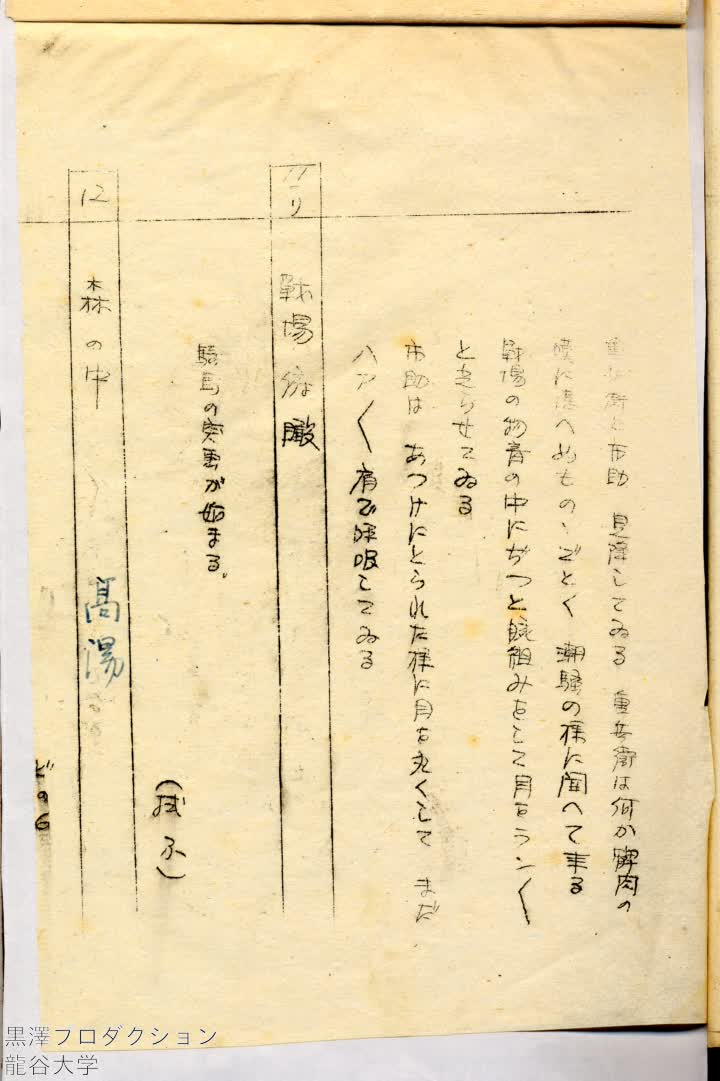 重兵衛と市助　見降してゐる　重兵衛は何か髀肉の
嘆に湛へぬものゝごとく　潮騒の様に聞へて来る
戦場の物音の中にぢつと腕組みをして目をラン〱
と光らせてゐる
市助は　あつけにとられた様に目を丸くして　まだ
ハア〱肩で呼吸してゐる
11ーリ
戦場俯瞰
騎馬の突撃が始まる。
（拭不）
12
森の中
高湯
どの
黒澤プロダクション
龍谷大学